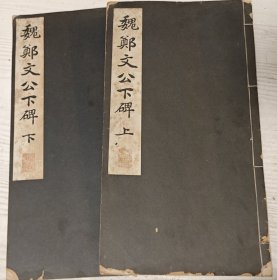 魏鄭文公下碑 上
魏鄭文公下碑 下